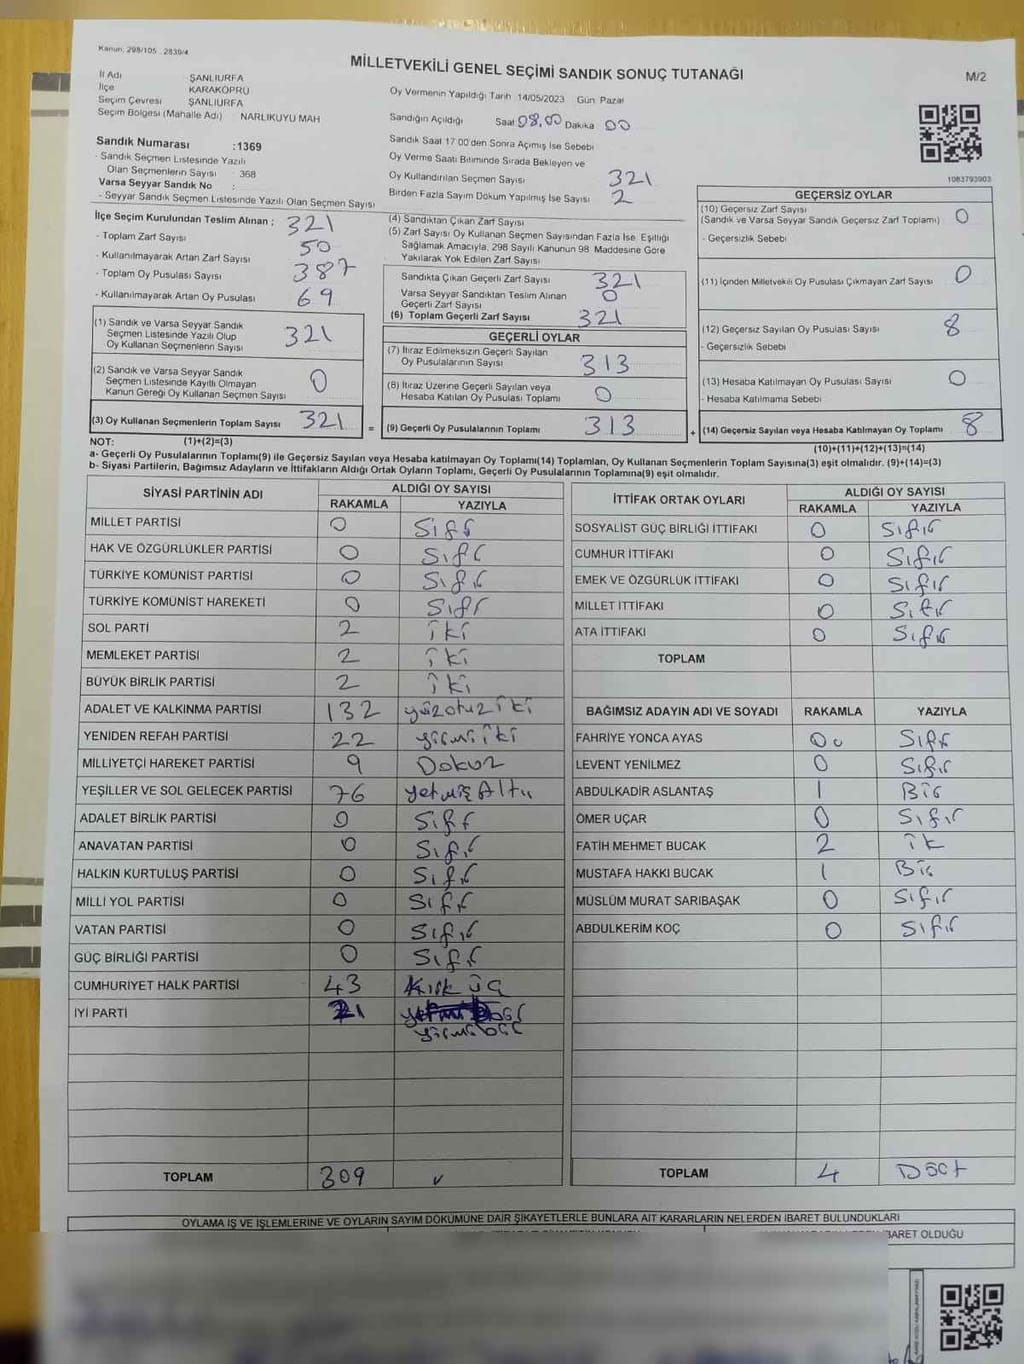 Kanun: 298/105 . 2839/4
MİLLETVEKİLİ GENEL SEÇİMİ SANDIK SONUÇ TUTANAĞI
M/2
İl Adı ŞANLIURFA
İlçe KARAKÖPRÜ
Seçim Çevresi ŞANLIURFA
Seçim Bölgesi (Mahalle Adı) NARLIKUYU MAH
Oy Vermenin Yapıldığı Tarih 14/05/2023 Gün Pazar
Sandığın Açıldığı Saat 08.00 Dakika 00
Sandık Saat 17:00'den Sonra Açılmış İse Sebebi
Oy Verme Saati Bitiminde Sırada Bekleyen ve
Oy Kullandırılan Seçmen Sayısı 321
Birden Fazla Sayım Döküm Yapılmış İse Sayısı 2
Sandık Numarası :1369
- Sandık Seçmen Listesinde Yazılı
Olan Seçmenlerin Sayısı : 368
Varsa Seyyar Sandık No :
- Seyyar Sandık Seçmen Listesinde Yazılı Olan Seçmen Sayısı
1083793903
İlçe Seçim Kurulundan Teslim Alınan ; 321
- Toplam Zarf Sayısı 50
- Kullanılmayarak Artan Zarf Sayısı 387
- Toplam Oy Pusulası Sayısı
- Kullanılmayarak Artan Oy Pusulası 69
(1) Sandık ve Varsa Seyyar Sandık
Seçmen Listesinde Yazılı Olup
Oy Kullanan Seçmenlerin Sayısı 321
(2) Sandık ve Varsa Seyyar Sandık
Seçmen Listesinde Kayıtlı Olmayan
Kanun Gereği Oy Kullanan Seçmen Sayısı 0
(3) Oy Kullanan Seçmenlerin Toplam Sayısı 321
(4) Sandıktan Çıkan Zarf Sayısı
(5) Zarf Sayısı Oy Kullanan Seçmen Sayısından Fazla İse, Eşitliği
Sağlamak Amacıyla, 298 Sayılı Kanunun 98. Maddesine Göre
Yakılarak Yok Edilen Zarf Sayısı
Sandıkta Çıkan Geçerli Zarf Sayısı 321
Varsa Seyyar Sandıktan Teslim Alınan
Geçerli Zarf Sayısı 0
(6) Toplam Geçerli Zarf Sayısı 321
GEÇERLİ OYLAR
(7) İtiraz Edilmeksizin Geçerli Sayılan
Oy Pusulalarının Sayısı 313
(8) İtiraz Üzerine Geçerli Sayılan veya
Hesaba Katılan Oy Pusulası Toplamı 0
= (9) Geçerli Oy Pusulalarının Toplamı 313
GEÇERSİZ OYLAR
(10) Geçersiz Zarf Sayısı
(Sandık ve Varsa Seyyar Sandık Geçersiz Zarf Toplamı) 0
- Geçersizlik Sebebi
(11) İçinden Milletvekili Oy Pusulası Çıkmayan Zarf Sayısı 0
(12) Geçersiz Sayılan Oy Pusulası Sayısı 8
- Geçersizlik Sebebi
(13) Hesaba Katılmayan Oy Pusulası Sayısı 0
- Hesaba Katılmama Sebebi
+ (14) Geçersiz Sayılan veya Hesaba Katılmayan Oy Toplamı 8
NOT: (1)+(2)=(3) (10)+(11)+(12)+(13)=(14)
a- Geçerli Oy Pusulalarının Toplamı(9) ile Geçersiz Sayılan veya Hesaba katılmayan Oy Toplamı(14) Toplamları, Oy Kullanan Seçmenlerin Toplam Sayısına(3) eşit olmalıdır. (9)+(14)=(3)
b- Siyasi Partilerin, Bağımsız Adayların ve İttifakların Aldığı Ortak Oyların Toplamı, Geçerli Oy Pusulalarının Toplamına(9) eşit olmalıdır.
SİYASİ PARTİNİN ADI ALDIĞI OY SAYISI
RAKAMLA YAZIYLA
MİLLET PARTİSİ 0 Sıfır
HAK VE ÖZGÜRLÜKLER PARTİSİ 0 Sıfır
TÜRKİYE KOMÜNİST PARTİSİ 0 Sıfır
TÜRKİYE KOMÜNİST HAREKETİ 0 Sıfır
SOL PARTİ 2 iki
MEMLEKET PARTİSİ 2 iki
BÜYÜK BİRLİK PARTİSİ 2 iki
ADALET VE KALKINMA PARTİSİ 132 yüzotuz iki
YENİDEN REFAH PARTİSİ 22 yirmi iki
MİLLİYETÇİ HAREKET PARTİSİ 9 Dokuz
YEŞİLLER VE SOL GELECEK PARTİSİ 76 yetmiş Altı
ADALET BİRLİK PARTİSİ 0 Sıfır
ANAVATAN PARTİSİ 0 Sıfır
HALKIN KURTULUŞ PARTİSİ 0 Sıfır
MİLLİ YOL PARTİSİ 0 Sıfır
VATAN PARTİSİ 0 Sıfır
GÜÇ BİRLİĞİ PARTİSİ 0 Sıfır
CUMHURİYET HALK PARTİSİ 43 Kırk üç
İYİ PARTİ 21
yirmi bir
TOPLAM 309
İTTİFAK ORTAK OYLARI ALDIĞI OY SAYISI
RAKAMLA YAZIYLA
SOSYALİST GÜÇ BİRLİĞİ İTTİFAKI 0 Sıfır
CUMHUR İTTİFAKI 0 Sıfır
EMEK VE ÖZGÜRLÜK İTTİFAKI 0 Sıfır
MİLLET İTTİFAKI 0 Sıfır
ATA İTTİFAKI 0 Sıfır
TOPLAM
BAĞIMSIZ ADAYIN ADI VE SOYADI RAKAMLA YAZIYLA
FAHRİYE YONCA AYAS 0 Sıfır
LEVENT YENİLMEZ 0 Sıfır
ABDULKADİR ASLANTAŞ 1 Bir
ÖMER UÇAR 0 Sıfır
FATİH MEHMET BUCAK 2 ik
MUSTAFA HAKKI BUCAK 1 Bir
MÜSLÜM MURAT SARIBAŞAK 0 Sıfır
ABDULKERİM KOÇ 0 Sıfır
TOPLAM 4 Dört
OYLAMA İŞ VE İŞLEMLERİNE VE OYLARIN SAYIM DÖKÜMÜNE DAİR ŞİKAYETLERLE BUNLARA AİT KARARLARIN NELERDEN İBARET BULUNDUKLARI
İBARET OLDUĞU